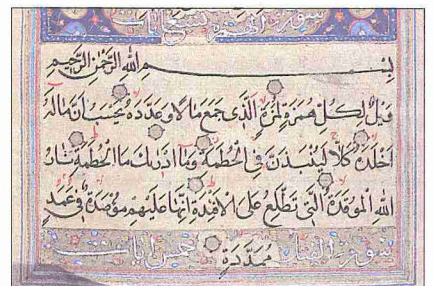 سورة الهمزة تسع آيات
بسم الله الرحمن الرحيم
ويل لكل همزة لمزة الذى جمع مالا وعدده يحسب ان ماله
اخلده كلا لينبذن فى الحطمة وما ادريك ما الحطمة نار
الله الموقدة التى تطلع على الافئدة انها عليهم مؤصدة فى عمد
ممددة
سورة الفيل خمس آيات